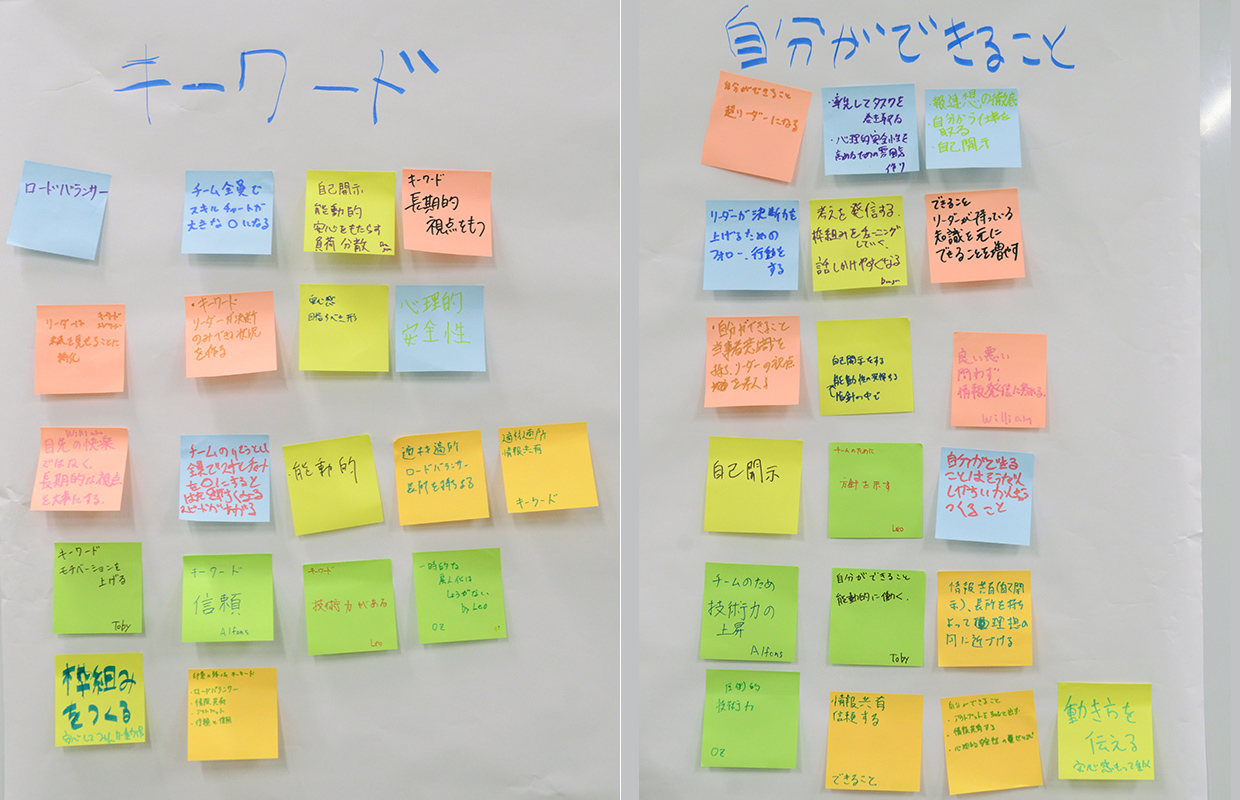 キーワード
ロードバランサー
チーム全員で
スキルチャートが
大きな○になる
自己開示
能動的
安心をもたらす
負荷分散
キーワード
長期的
視点をもつ
リーダーは
キーワード
・キーワード
リーダーが決断
のみできる状況
を作る
安心感
目指すべき形
心理的
安全性
目先の快楽
ではなく、
長期的な視点
を大事にする。
チームの
全員で
を○にすると
スピードが
・能動的
適材適所
ロードバランサー
長所を持ちよる
適材適所
情報共有
キーワード
キーワード
モチベーションを
上げる
Toby
キーワード
信頼
Alfons
キーワード
技術力がある
Leo
一時的な
属人化は
しょうがない
by Leo
OZ
枠組み
をつくる
キーワード
・ロードバランサー
・情報共有
・アウトプット
・信頼と信用
自分ができること
自分ができること
超リーダーになる
・率先してタスクを
巻き取る
・心理的安全性を
高めるための雰囲気
作り
・報連想の徹底
・自分から仕事を
取る
・自己開示
リーダーが決断力を
上げるための
フォロー、行動を
する
考えを発信する。
枠組みをチューニング
していく。
話しかけやすくなる
できること
リーダーが持っている
知識を元に
できることを増やす
・自分ができること
当事者意識を
持つ、リーダーの視点
自己開示をする
能動性の発揮する
指針の中で
良い悪い
問わず、
情報発信に努める。
自己開示
チームのために
方針を示す
Leo
自分ができる
ことは
つくること
チームのため
技術力の
上昇
Alfons
自分ができること
能動的に働く、
Toby
情報共有(自己開
示)、長所を持ち
よって理想の
円に近づける
圧倒的
技術力
OZ
情報共有
信頼する
できること
自分ができること
・情報共有する
動き方を
伝える
安心感もって動く